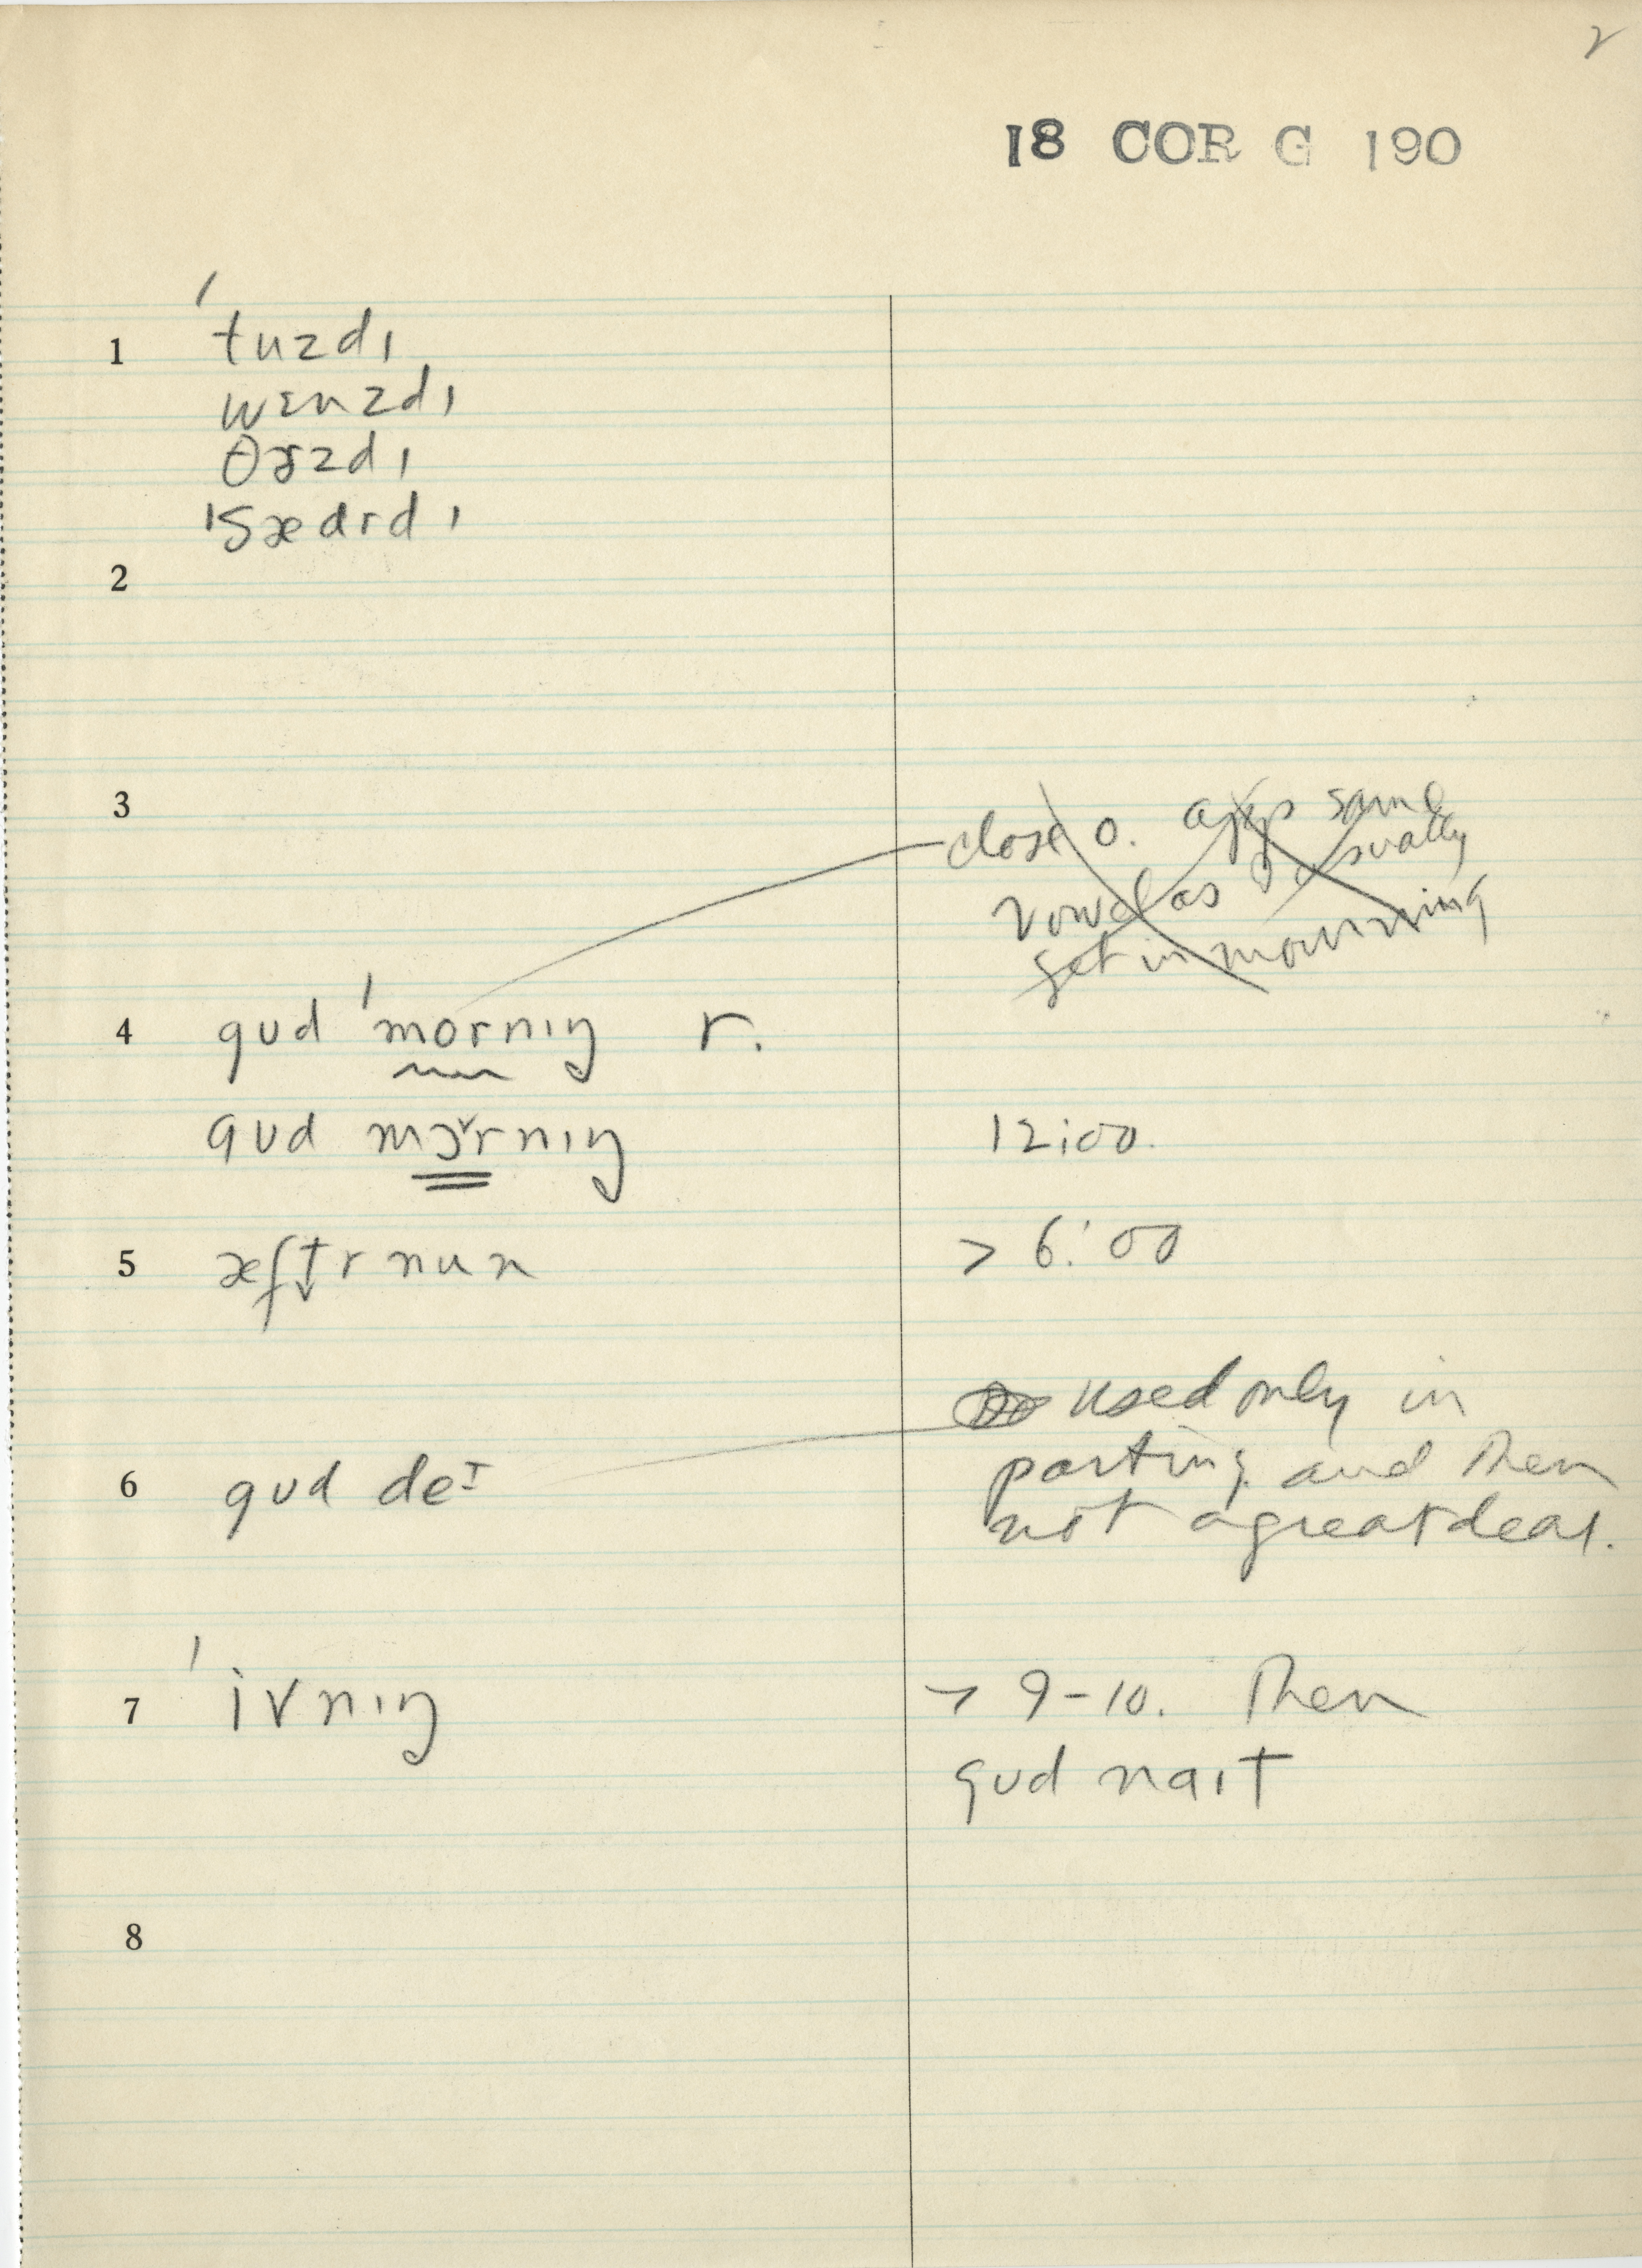 2
18 COR G 190
1 ˈtuzdɪ
wɛnzdɪ
θɝzdɪ
ˈsædrdɪ
2
3 close o. app same
vowel as I usually
get in mourning
4 gʊd ˈmornɪŋ r.
gʊd mɔ˅rnɪŋ 12:00.
5 æft̬rnun > 6:00
6 gʊd deɪ used only in
parting and then
not a great deal.
7 ˈivnɪŋ > 9-10. Then
gʊd naɪt
8